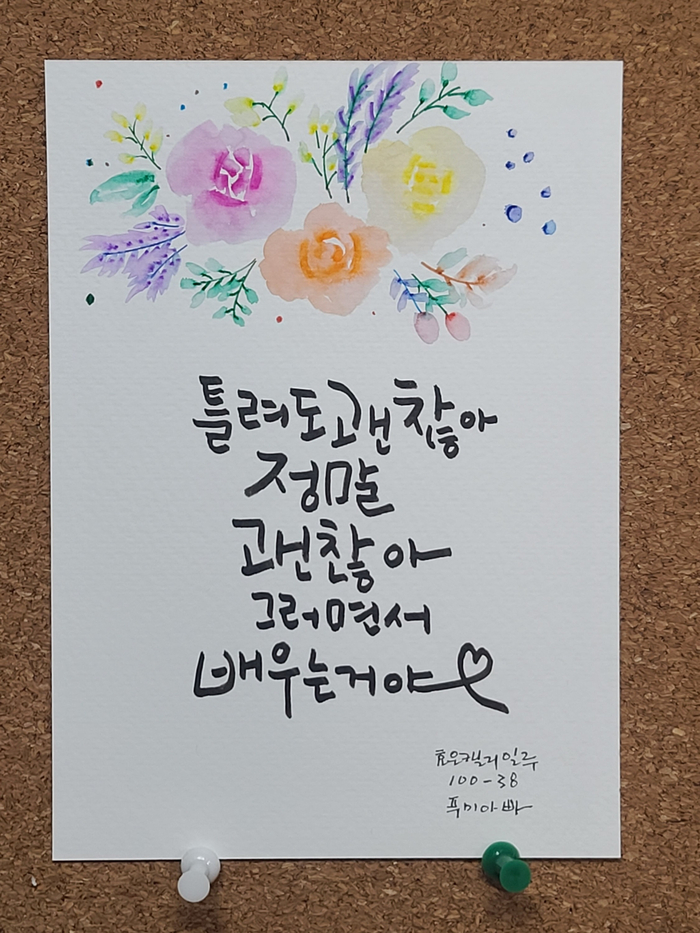 틀려도괜찮아
정말
괜찮아
그러면서
배우는거야
효오캘리일루
100-38
푸미아빠